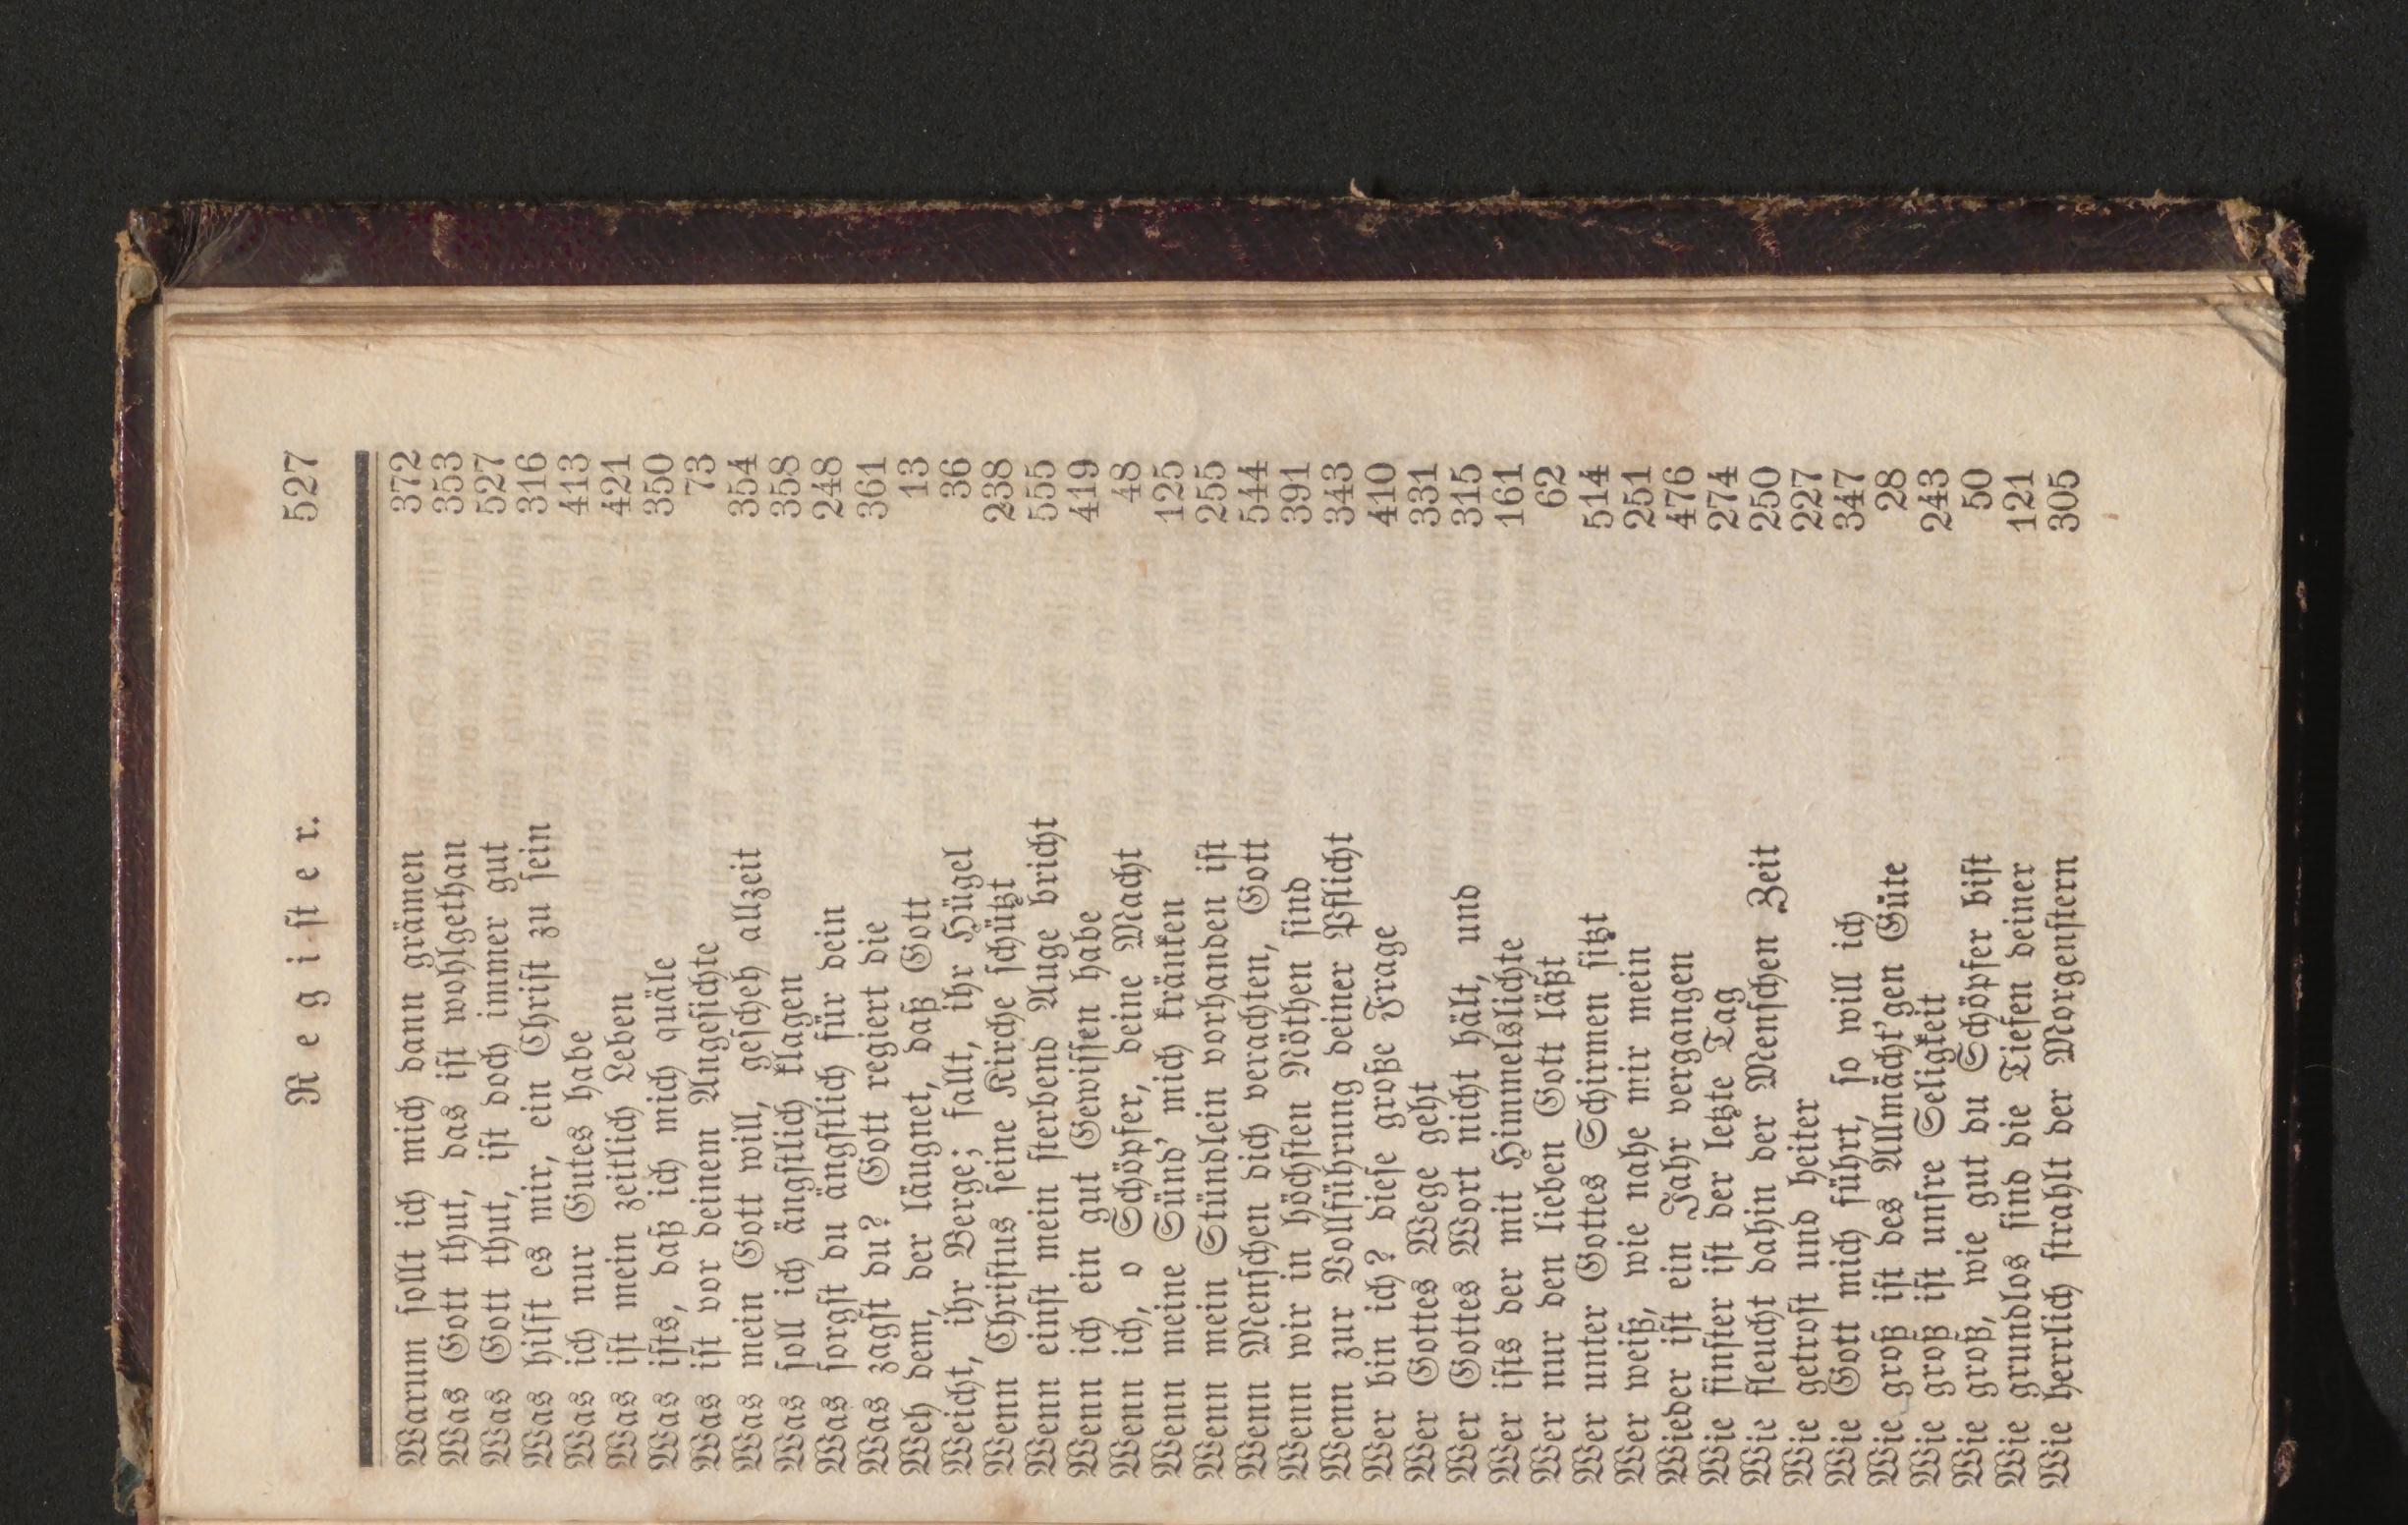 Register. 527
Warum sollt ich mich dann grämen 372
Was Gott thut, das ist wohlgethan 353
Was Gott thut, ist doch immer gut 527
Was hilft es mir, ein Christ zu sein 316
Was ich nur Gutes habe 413
Was ist mein zeitlich Leben 421
Was ists, daß ich mich quäle 350
Was ist vor deinem Angesichte 73
Was mein Gott will, gescheh allzeit 354
Was soll ich ängstlich klagen 358
Was sorgst du ängstlich für dein 248
Was zagst du? Gott regiert die 361
Weh dem, der läugnet, daß Gott 13
Weicht, ihr Berge; fallt, ihr Hügel 36
Wenn Christus seine Kirche schützt 238
Wenn einst mein sterbend Auge bricht 555
Wenn ich ein gut Gewissen habe 419
Wenn ich, o Schöpfer, deine Macht 48
Wenn meine Sünd' mich kränken 125
Wenn mein Stündlein vorhanden ist 255
Wenn Menschen dich verachten, Gott 544
Wenn wir in höchsten Nöthen sind 391
Wenn zur Vollführung deiner Pflicht 343
Wer bin ich? diese große Frage 410
Wer Gottes Wege geht 331
Wer Gottes Wort nicht hält, und 315
Wer ists der mit Himmelslichte 161
Wer nur den lieben Gott läßt 62
Wer unter Gottes Schirmen sitzt 514
Wer weiß, wie nahe mir mein 251
Wieder ist ein Jahr vergangen 476
Wie finster ist der letzte Tag 274
Wie fleucht dahin der Menschen Zeit 250
Wie getrost und heiter 227
Wie Gott mich führt, so will ich 347
Wie groß ist des Allmächt'gen Güte 28
Wie groß ist unsre Seligkeit 243
Wie groß, wie gut du Schöpfer bist 50
Wie grundlos sind die Tiefen deiner 121
Wie herrlich strahlt der Morgenstern 305